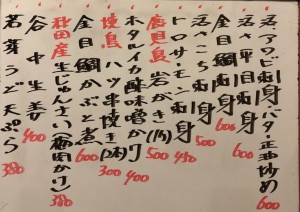 活アワビ刺身バター正油炒め 600
活平目刺身 600
金目鯛刺身 600
活さこち刺身 500
トロサーモン刺身 450
鹿児島 岩がき(1ヶ) 500
ホタルイカ酢味噌かけ 400
焼鳥 ハツ串焼き(2本) 300
金目鯛かぶと煮 600
秋田産生じゅんさい(梅肉かけ) 380
谷中生姜 400
若芽うど天ぷら 380